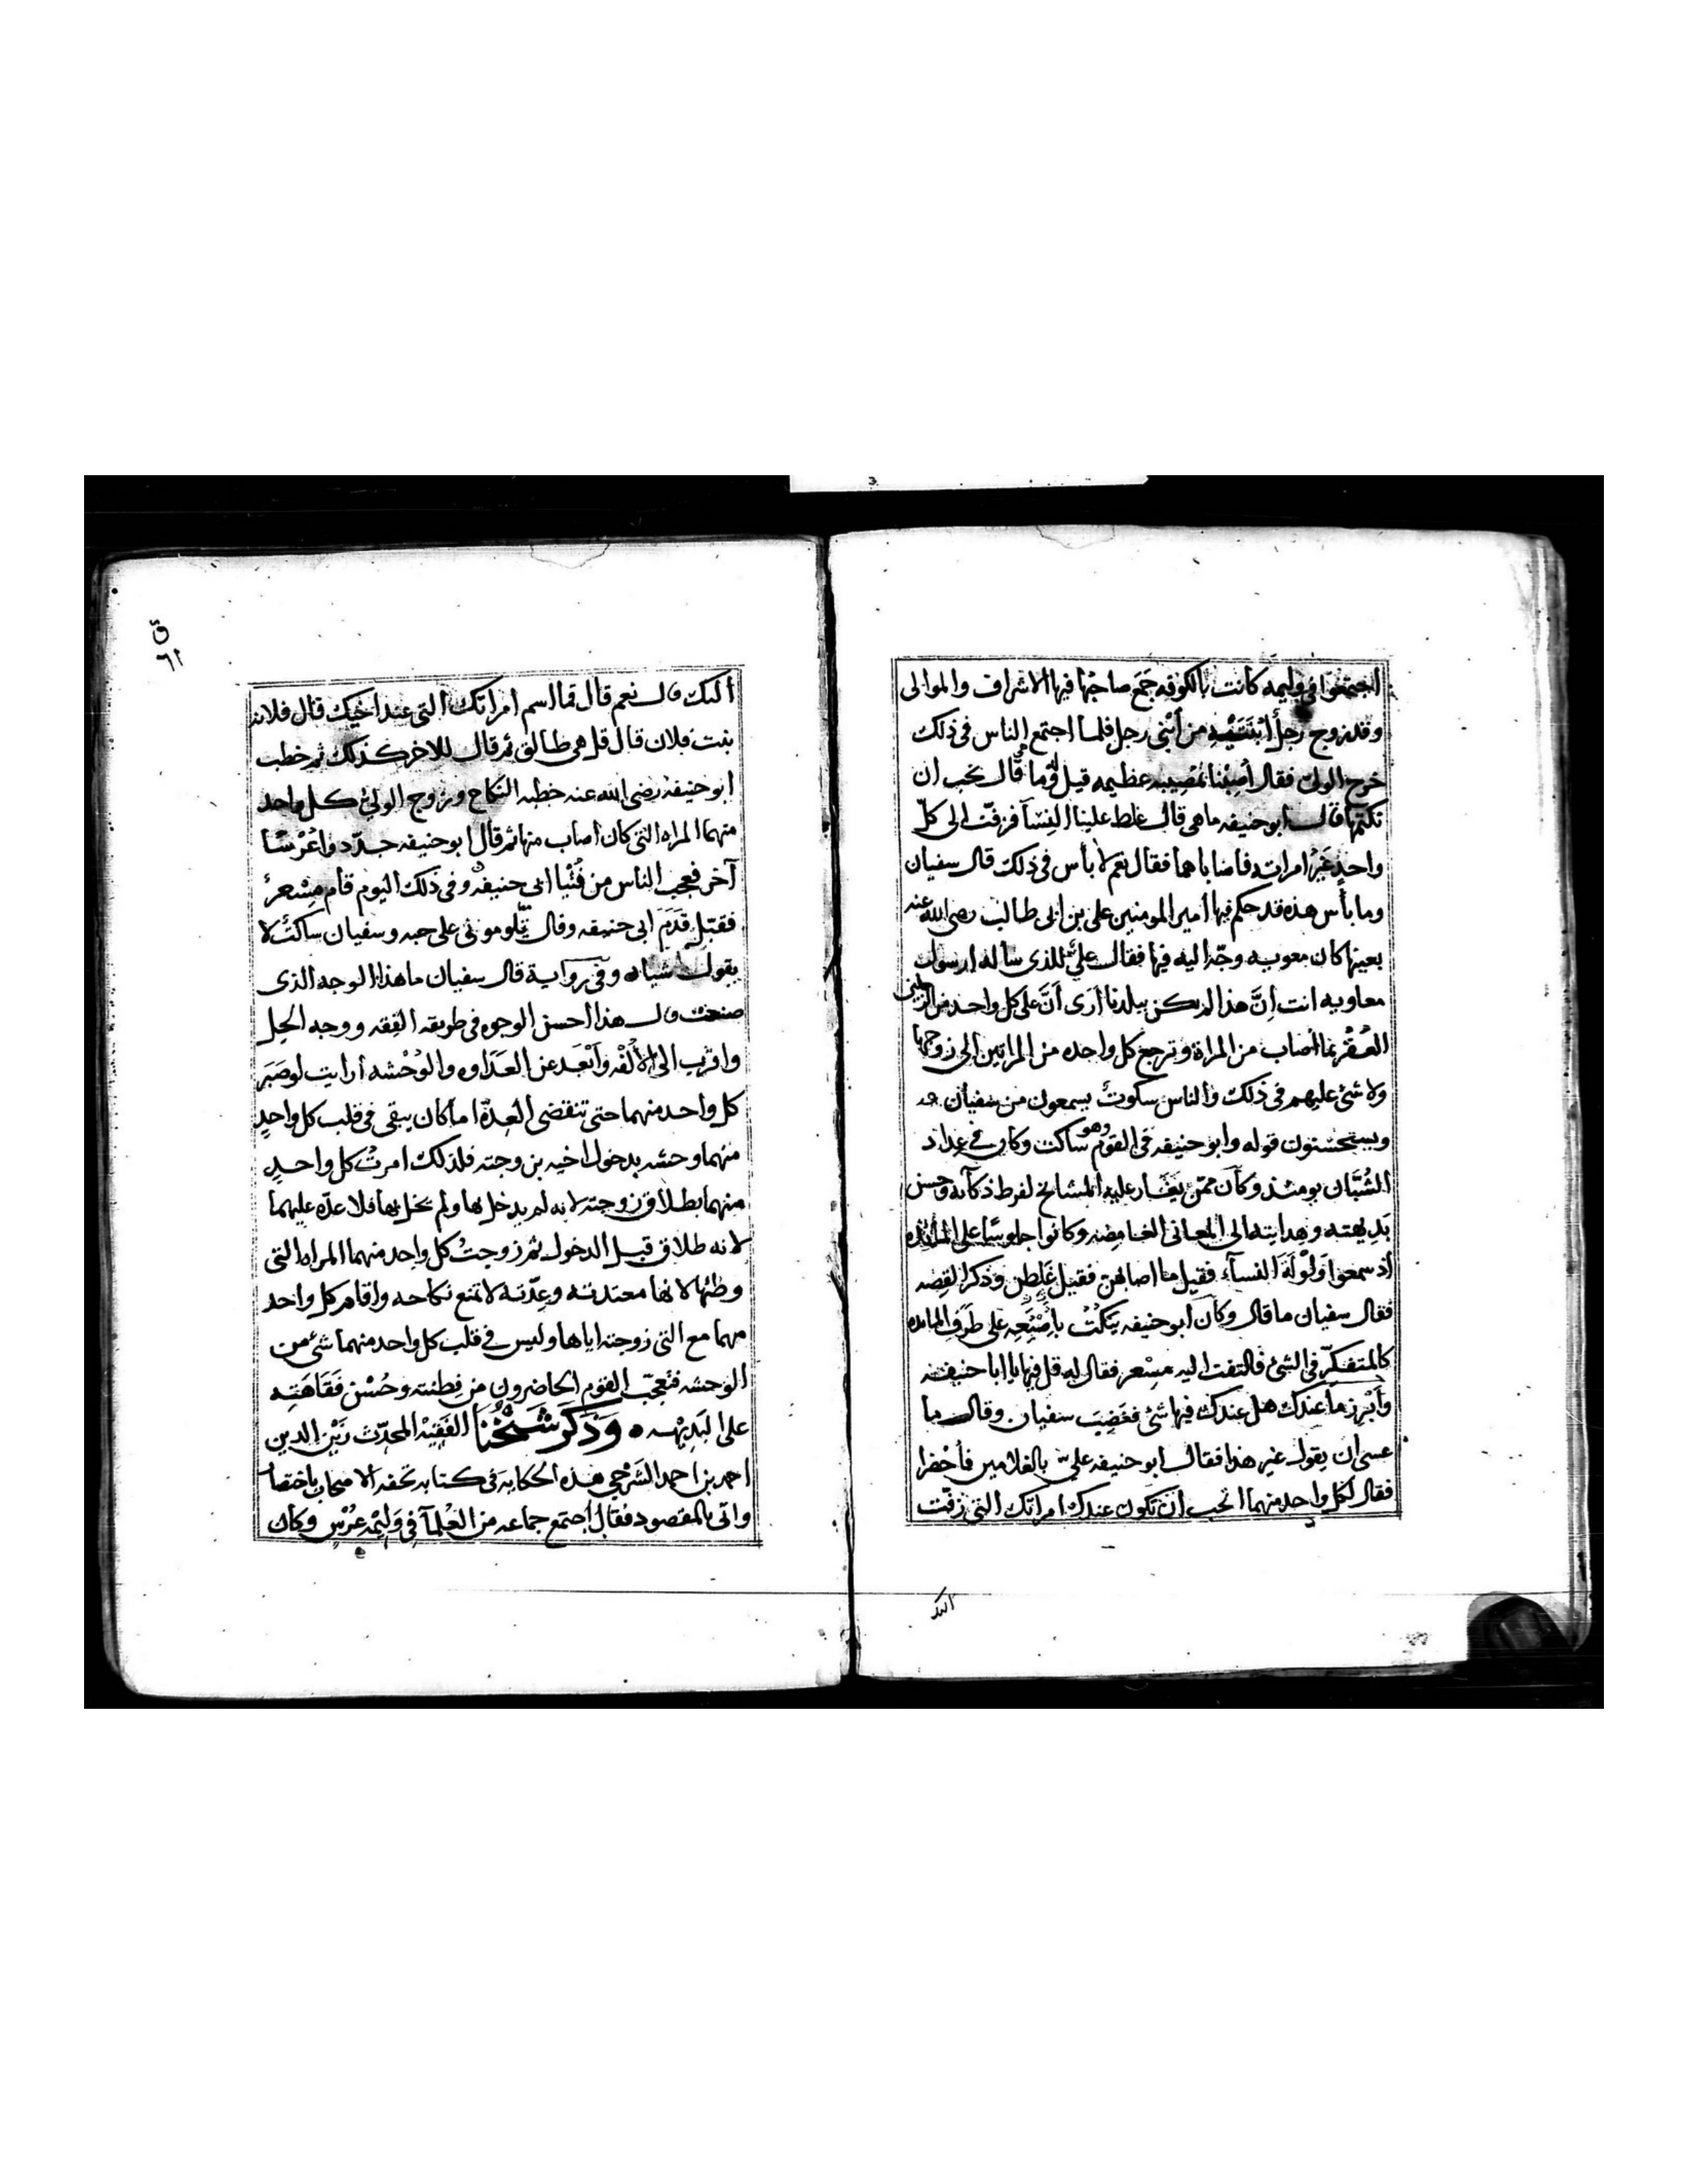 اجتمعوا في وليمه كانت بالكوفه جمع صاحبها فيها الاشراف والموالى
وقد زوج رجل ابنتيه من ابني رجل فلما اجتمع الناس في ذلك
خرج الولى فقال أصبنا بمصيبه عظيمه قيل له وما هي قال نحب ان
نكتمها قال ابو حنيفه ما هي قال غلط علينا النسآ فزفت الى كل
واحد غير امراته فاصاباهما فقال نعم لا بأس في ذلك قال سفيان
وما بأس هذه قد حكم فيها امير المومنين على بن ابى طالب رضى الله عنه
بعينها كان معويه وجّه اليه فيها فقال علىّ للذى ساله ارسول
معاويه انت اِنّ هذا لم يكن ببلدنا أرَى أنّ على كل واحد من الرجلين
العُقْر بما أصاب من المراة وترجع كل واحده من المراتين الى زوجها
ولا شئ عليهم في ذلك والناس سكوت يسمعون من سفيان
ويستحسنون قوله وابو حنيفه في القوم وهو ساكت وكان في عداد
الشُبّان يومئذ وكان ممن يَغَار عليه المشايخ لفرط ذكآئه وحسن
بَدِيهته وهدايته الى المعانى الغامضه وكانوا جلوسًا على المائده
اذ سمعوا وَلْوَلَة النسآء فقيل ما اصابهن فقيل غَلِطن وذكر القصه
فقال سفيان ما قال وكان ابو حنيفه ينكُت باُصْبُعِه على طَرَف المائده
كالمتفكّر في الشئ فالتفت اليه مِسْعر فقال له قل فيها يا ابا حنيفه
وأبْرِز ما عندك هل عندك فيها شئ فغضِبَ سفيان وقال ما
عسى ان يقول غير هذا فقال ابو حنيفه علىّ بالغلامين فأحْضِرا
فقال لكل واحد منهما اتحب ان تكون عندك امراتك التى زفّت
اليك
ق
٦١
أليك قال نعم قال فما اسم امراتك التى عند اخيك قال فلانه
بنت فلان قال قل هى طالق ثم قال للاخر كذلك ثم خطب
ابو حنيفة رضى الله عنه خطبه النكاح وزوج الولىّ كل واحد
منهما المراه التى كان اصاب منها ثم قال ابو حنيفه جدّدوا عُرْسًا
آخر فعجب الناس من فُتْيا ابى حنيفه وفي ذلك اليوم قام مِسْعرٌ
فقبّل قَدَمَ ابى حنيفه وقال تلومونى على حبه وسفيان ساكت لا
يقول شياء وفي رواية قال سفيان ما هذا الوجه الذى
صنعت قال هذا احسن الوجوه في طريقه الفقه ووجه الحِل
واقرب الى الألْفه وأبْعَد عن العَدَاوه والوُحْشه أرايت لو صَبَر
كل واحد منهما حتى تنقضى العِدّة اما كان يبقى في قلب كل واحدٍ
منهما وحشه بدخول اخيه بزوجته فلذلك امرتُ كل واحدٍ
منهما بطلاق زوجته لانه لم يدخل بها ولم يخل بها فلا عدّه عليهما
لانه طلاق قبل الدخول ثم زوجتُ كل واحد منهما المراه التى
وطئها لانها معتدته وعِدّته لا تمنع نكاحه واقام كل واحد
منهما مع التى زوجته اياها وليس في قلب كل واحد منهما شئ من
الوحشه فتعجّب القوم الحاضرون من فِطنته وحُسْن فَقَاهَتِه
على البَدِيْهه ٥ وَذَكَرَ شَيْخُنَا الفَقِيْهُ المحدّث زَيْن الدين
احمد بن احمد الشَرْجى هذه الحكايه في كتابه تحفه الاصحاب باختصا
واتى بالمقصود فقال اجتمع جماعه من العُلمآ في وَلِيْمه عُرْسٍ وكان